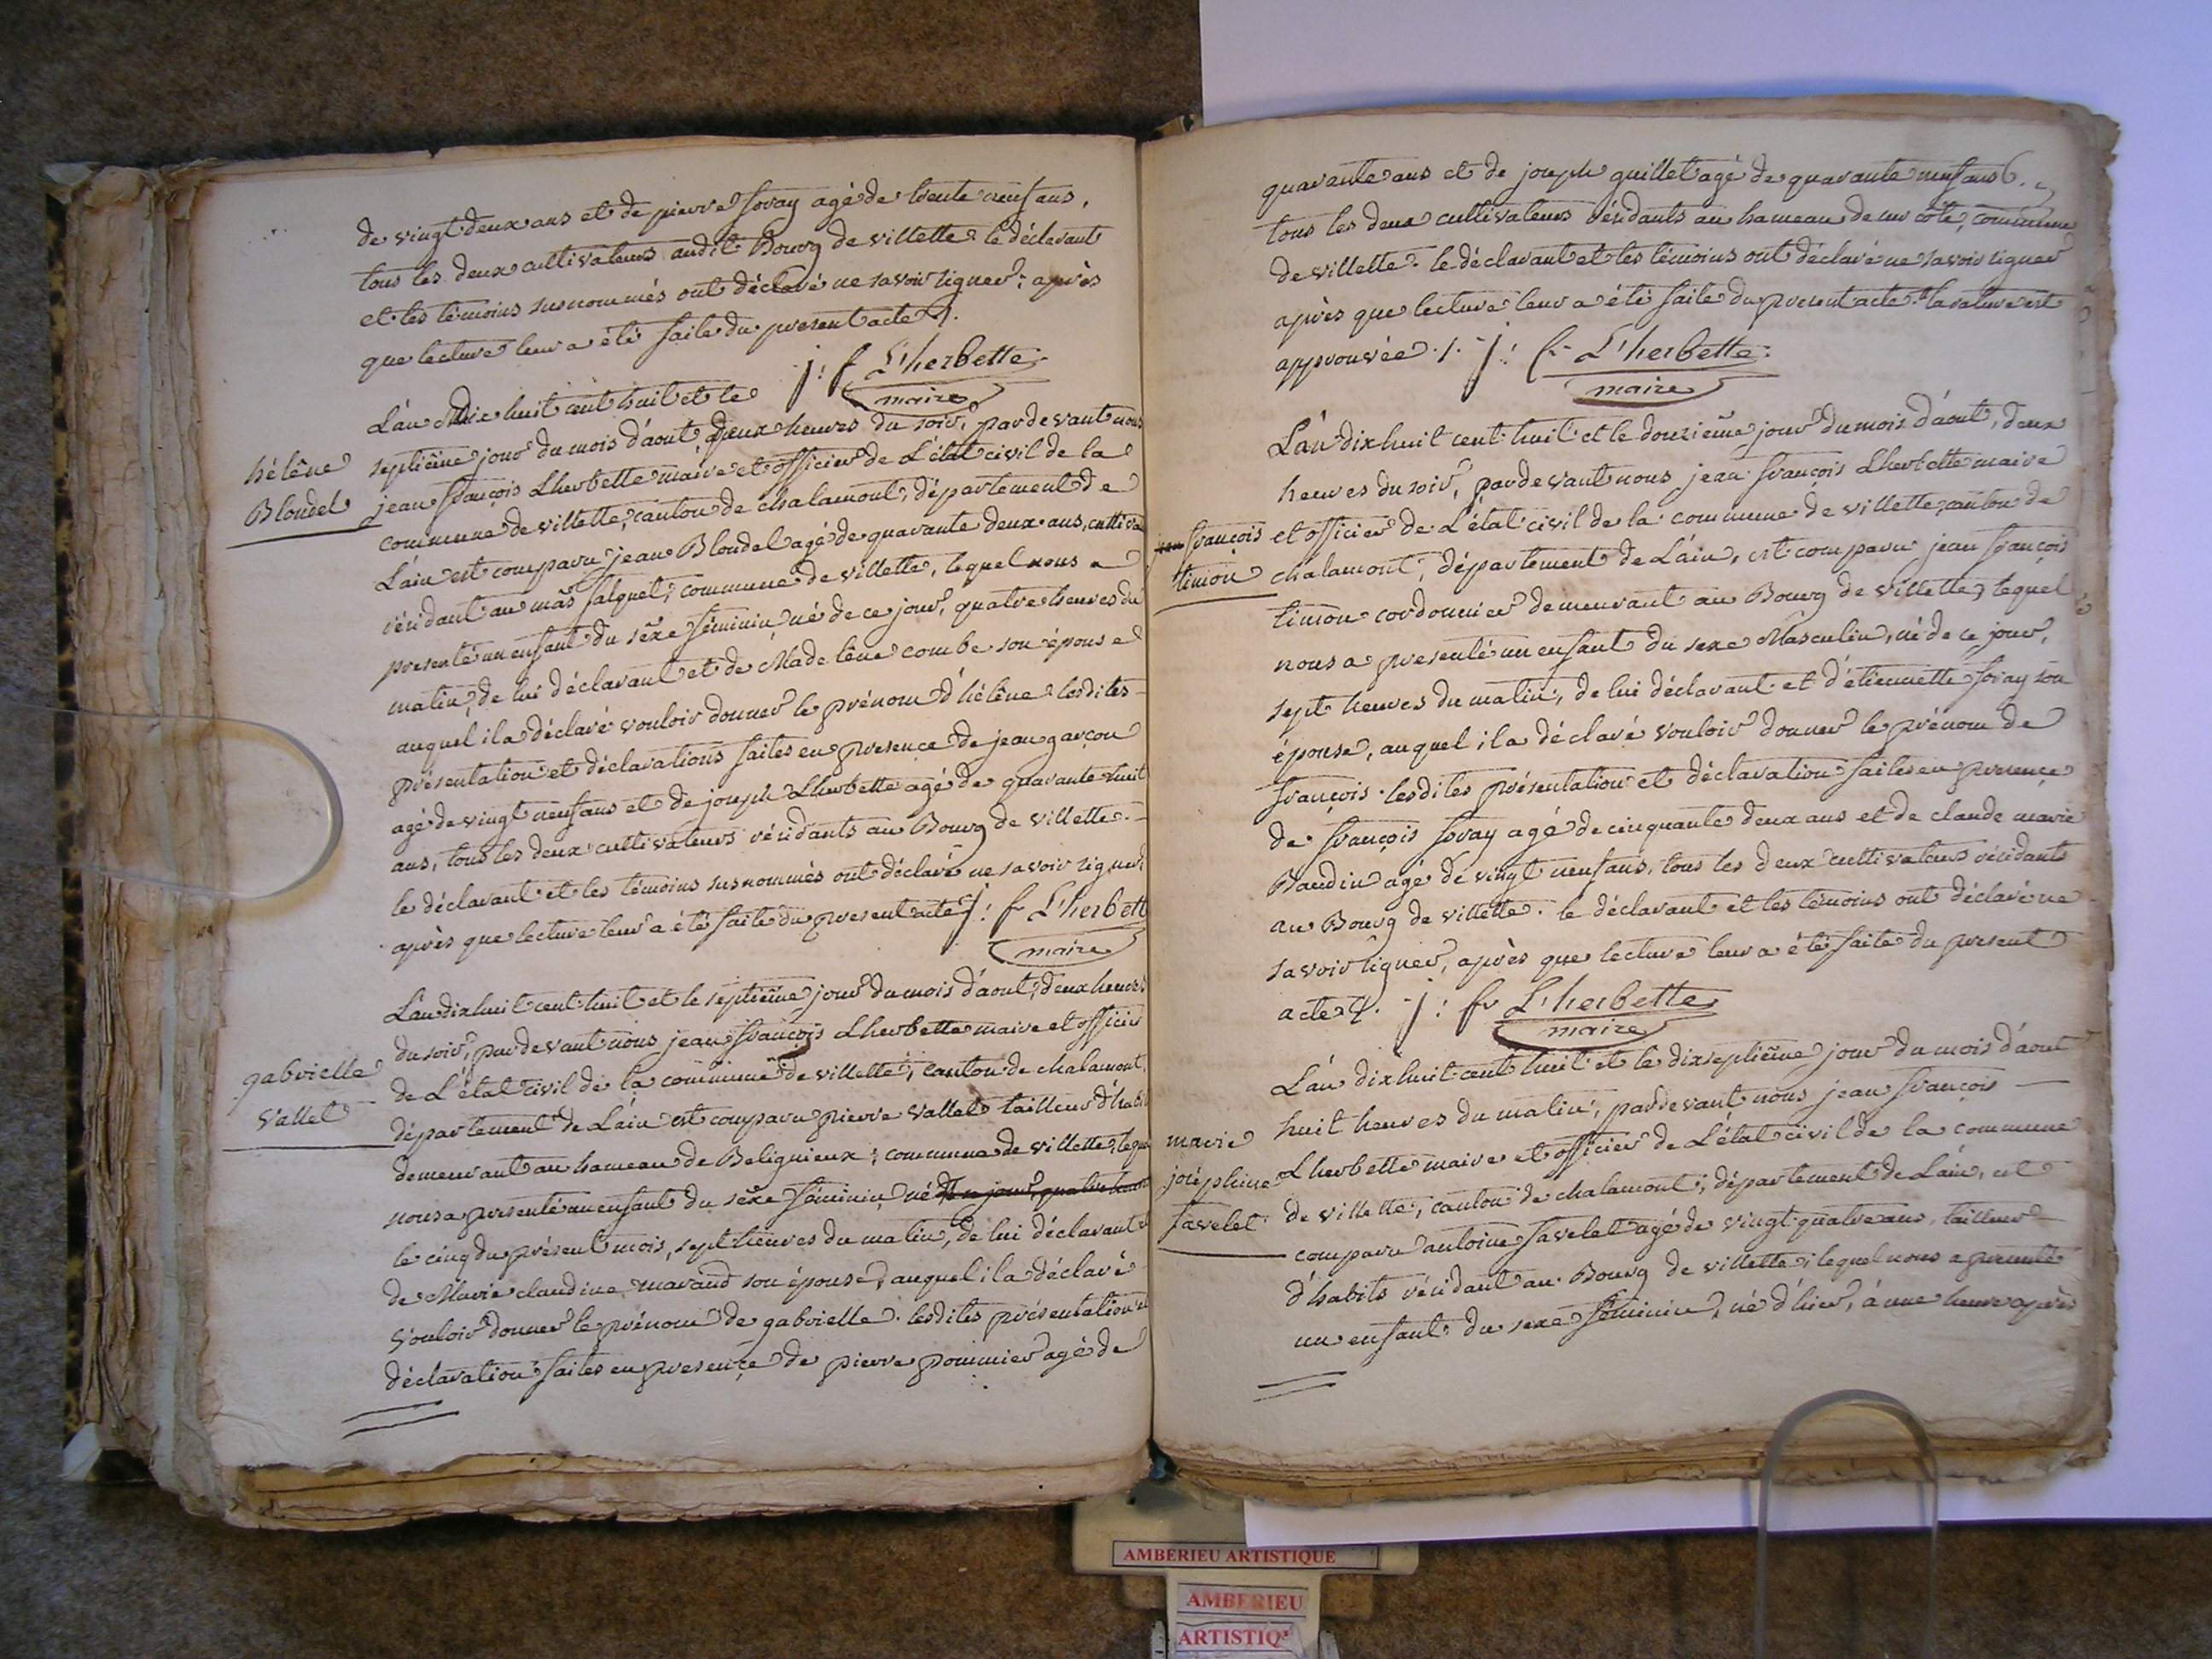 de vingt deux ans et de pierre foray agé de trente neuf ans,
tous les deux cultivateurs audit Bourg de villette. le déclarant
et les témoins susnommés ont déclaré ne savoir signer, après
que lecture leur a été faite du present acte ./.
j: f L'herbette
maire
L'an Dix huit cent huit et le
septiême jour du mois d'aout deux heures du soir, pardevant nous
hélêne
Blondel
jean françois Lherbette maire et officier de L'état civil de la
commune de villette, canton de chalamont, département de
L'ain est comparu jean Blondel agé de quarante deux ans, cultiva
résidant au mas falquet, commune de villette, lequel nous a
presenté un enfant du sêxe féminin né de ce jour, quatre heures du
matin, de lui déclarant et de Madelêne combe son épouse
auquel il a déclaré vouloir donner le prénom d'hélêne. lesdites
présentation et déclarations faites en presence de jean garçon
agé de vingt neuf ans et de joseph Lherbette agé de quarante huit
ans, tous les deux cultivateurs résidants au Bourg de villette.
le déclarant et les témoins susnommés ont déclaré ne savoir signer,
après que lecture leur a été faite du present acte j: f L'herbett
maire
L'an dix huit cent huit et le septiême jour du mois d'aout, deux heures
du soir, pardevant nous jean françois Lherbette maire et officier
gabrielle
vallet
de L'état civil de la commune de villette, canton de chalamont,
département de L'ain est comparu pierre vallet tailleur d'habi
demeurant au hameau de Beligneux, commune de villette, lequ
nous a presenté un enfant du sêxe féminin né de ce jour, quatre heures
le cinq du présent mois, sept heures du matin, de lui déclarant et
de Marie claudine marand son épouse, auquel il a déclaré
vouloir donner le prénom de gabrielle. lesdites présentation et
déclaration faites en presence de pierre pommier agé de
quarante ans et de joseph guillet agé de quarante neuf ans 6.
tous les deux cultivateurs résidants au hameau de sur côte, commune
de villette. le déclarant et les témoins ont déclaré ne savoir signer
après que lecture leur a été faite du present acte. la rature est
approuvée ./. j: f. L'herbette
maire
L'an dix huit cent huit et le douziême jour du mois d'aout, deux
heures du soir, pardevant nous jean françois Lherbette maire
jean françois
timon
et officier de L'état civil de la commune de villette, canton de
chalamont, département de L'ain, est comparu jean françois
timon cordonnier demeurant au Bourg de villette, lequel
nous a presenté un enfant du sexe Masculin, né de ce jour,
sept heures du matin, de lui déclarant et d'étiennette foray son
épouse, auquel il a déclaré vouloir donner le prénom de
françois. lesdites présentation et déclaration faites en presence
de françois foray agé de cinquante deux ans et de claude marie
Baudin agé de vingt neuf ans, tous les deux cultivateurs résidants
au Bourg de villette. le déclarant et les témoins ont déclaré ne
savoir signer, après que lecture leur a été faite du present
acte ./. j: fr L'herbette
maire
L'an dix huit cent huit et le dix septiême jour du mois d'aout
huit heures du matin, pardevant nous jean françois
marie
joséphine
favelet
Lherbette maire et officier de L'état civil de la commune
de villette, canton de chalamont, département de L'ain, est
comparu antoine favelet agé de vingt quatre ans, tailleur
d'habits résidant au Bourg de villette, lequel nous a presenté
un enfant du sexe féminin, né d'hier, à une heure après
AMBERIEU ARTISTIQUE
AMBERIEU
ARTISTIQ